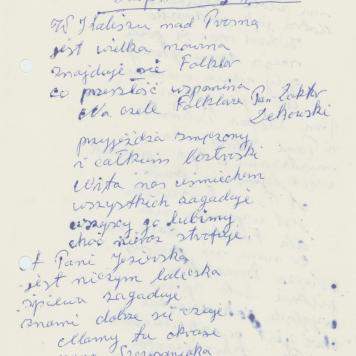 W Kaliszu nad Prosną
jest wielka nowina
znajduje się Folklor
co przeszłość wspomina
Na czele Folkloru Pan Doktor
przyjeżdża zmęczony
i całkiem beztroski
Wita nas uśmiechem
wszystkich zagaduje
wszyscy go lubimy
choć nieraz strofuje.
A Pani
jest niczym laleczka
śpiewa zagaduje
znami dobrze się czuje
Mamy tu